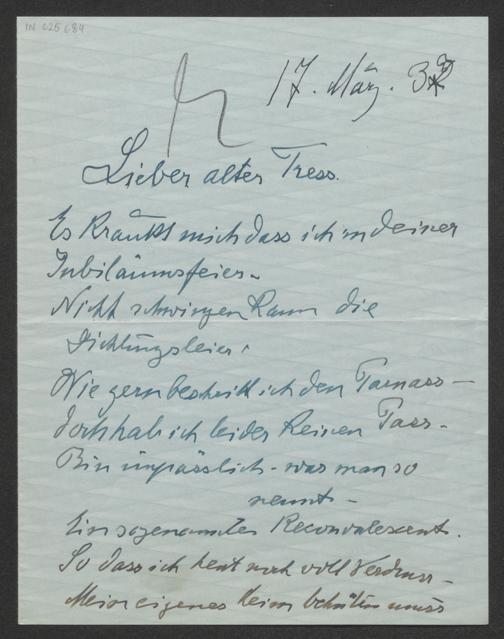 IN 225.684
17. März. 33
Lieber alter Tress.
Es kränkt mich dass ich in deiner
Jubiläumsfeier -
Nicht schwingen kann die
Dichtungsleier!
Wie gern beschritt ich den Parnass -
doch hab ich leider keinen Pass -
Bin unpässlich - was man so
nennt -
Ein sogenannter Reconvalescent.
So dass ich heut noch voll Verdruss -
Mein eigenes Heim behüten muss